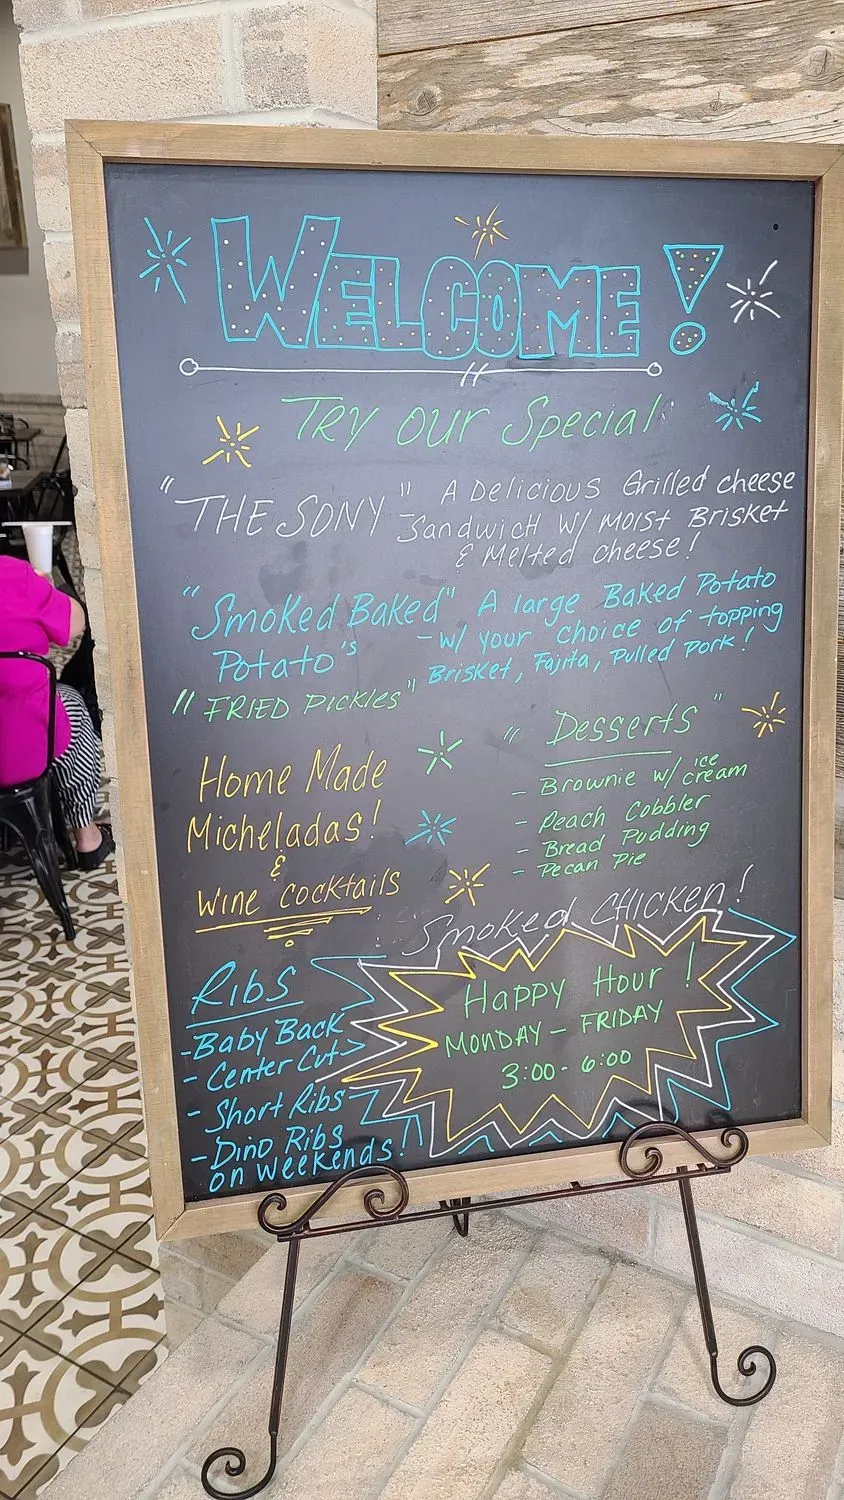 WELCOME!
Try our Special
"THE SONY" - A Delicious Grilled cheese
Sandwich w/ moist Brisket
& Melted cheese!
"Smoked Baked" A large Baked Potato
Potato's - w/ your choice of topping
Brisket, Fajita, Pulled Pork!
"FRIED PICKLES"
"Desserts"
- Brownie w/ ice cream
- Peach Cobbler
- Bread Pudding
- Pecan Pie
Home Made
Micheladas!
&
Wine cocktails
Smoked CHICKEN!
Ribs
- Baby Back
- Center Cut
- Short Ribs
- Dino Ribs
on weekends!
Happy Hour!
MONDAY - FRIDAY
3:00 - 6:00